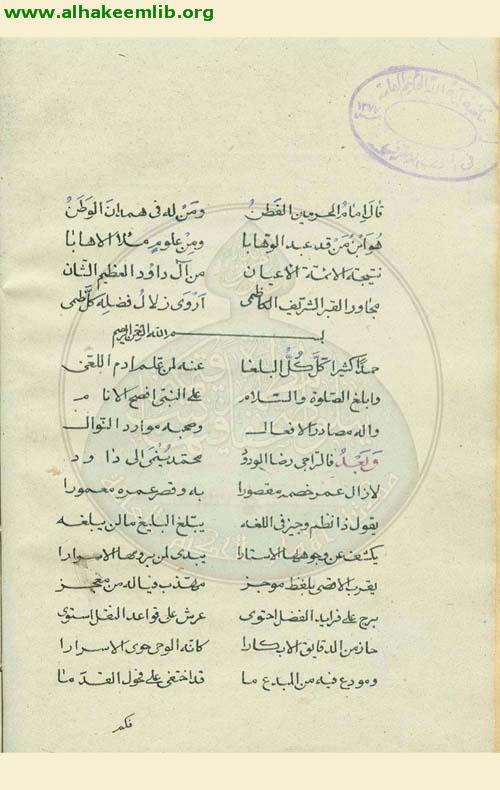 www.alhakeemlib.org
قال امام الحرمين الفطن ومن له في همدان الوطن
هو ابن من قد عبد الوهابا ومن علوم ملأ الاهابا
نتيجة الائمة الاعيان من آل داود العظيم الشان
مجاور القبر الشريف الكاظمي أروى زلال فضله كل ظمي
بسم الله الرحمن الرحيم
حمدا كثيرا كل كل البلغا عنه لمن علم ادم اللغى
وابلغ الصلوة والسلام على النبي افصح الانام
واله مصادر الافعال وصحبه موارد النوال
وبعد فالراجي رضا الودود محمد ينمى الى داود
لازال عمر خصمه مقصورا به وقصر عمره معمورا
يقول ذا نظم وجيز في اللغه يبتلغ البليغ ما لن يبلغه
يكشف عن وجوهها الاستارا يبدى لمن يرومها الاسرارا
يقرب الاقصى بلفظ موجز مهذب فياله من معجز
برج على فرايد الفضل احتوى عرش على قواعد النقل استوى
حاز من الدقايق الابكارا كانه الوحي حوى الاسرارا
ومودع فيه من المبدع ما قد اختفى على فحول القدما
فكم